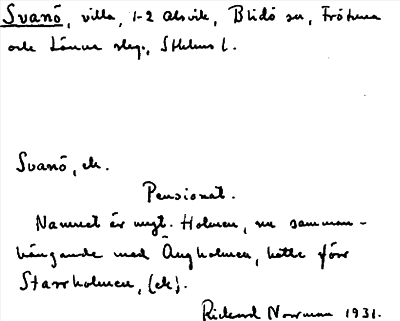 Svanö, villa, 1-2 Alsvik, Blidö sn, Frötuna
och Länna slg., Sthlms l.
Svanö, ek.
Pensionat.
Namnet är nygt. Holmen, nu samman-
hängande med Angholmen, hette förr
Starrholmen, (ek).
Rickard Norrman 1931.